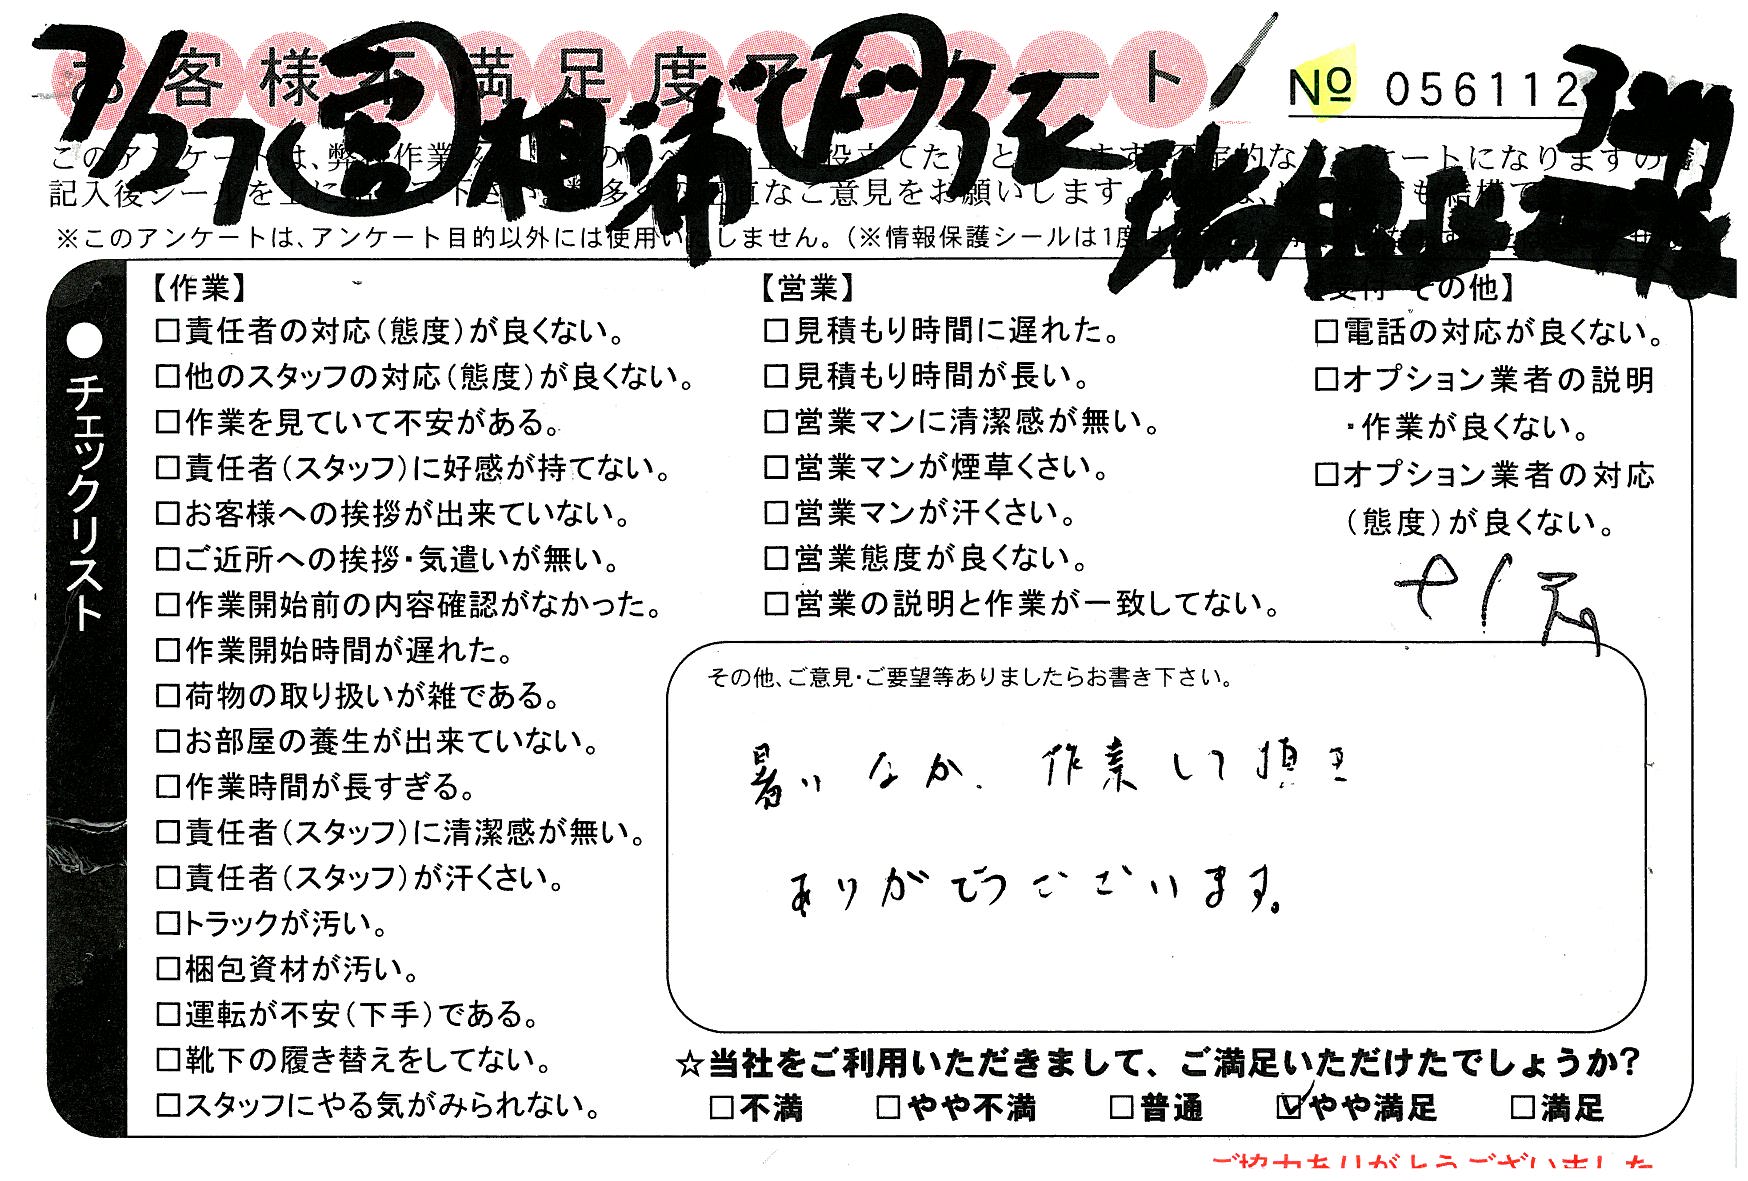 お客様不満足度アンケート
№ 056112
7/27
※このアンケートは、アンケート目的以外には使用い しません。(※情報保護シールは1度
チェックリスト
【作業】
□責任者の対応(態度)が良くない。
□他のスタッフの対応(態度)が良くない。
□作業を見ていて不安がある。
□責任者(スタッフ)に好感が持てない。
□お客様への挨拶が出来ていない。
□ご近所への挨拶・気遣いが無い。
□作業開始前の内容確認がなかった。
□作業開始時間が遅れた。
□荷物の取り扱いが雑である。
□お部屋の養生が出来ていない。
□作業時間が長すぎる。
□責任者(スタッフ)に清潔感が無い。
□責任者(スタッフ)が汗くさい。
□トラックが汚い。
□梱包資材が汚い。
□運転が不安(下手)である。
□靴下の履き替えをしてない。
□スタッフにやる気がみられない。
【営業】
□見積もり時間に遅れた。
□見積もり時間が長い。
□営業マンに清潔感が無い。
□営業マンが煙草くさい。
□営業マンが汗くさい。
□営業態度が良くない。
□営業の説明と作業が一致してない。
その他】
□電話の対応が良くない。
□オプション業者の説明
・作業が良くない。
□オプション業者の対応
(態度)が良くない。
その他、ご意見・ご要望等ありましたらお書き下さい。
暑いなか、作業して頂き
ありがとうございます。
☆当社をご利用いただきまして、ご満足いただけたでしょうか?
□不満 □やや不満 □普通 ☑やや満足 □満足
ご協力ありがとうございました